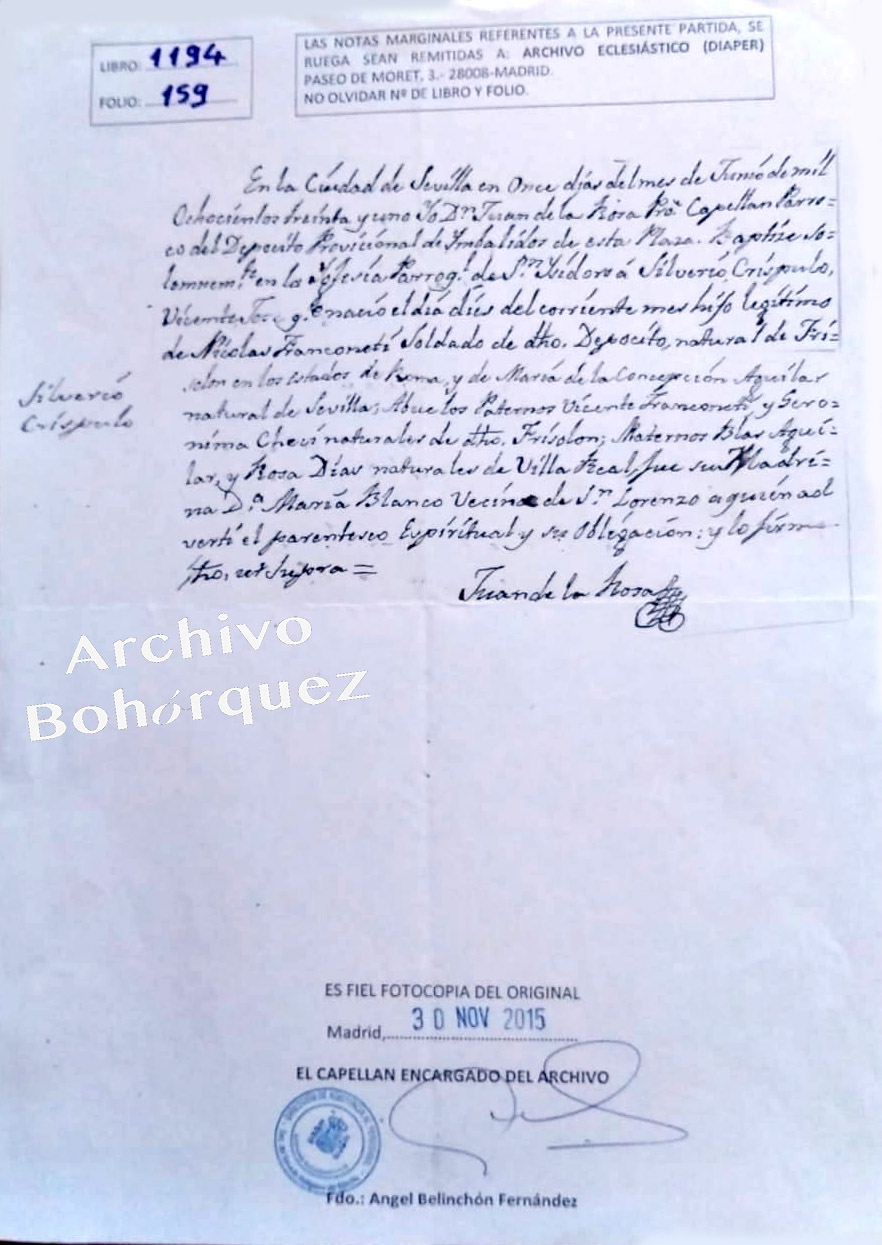 LIBRO: 1194
FOLIO: 159
LAS NOTAS MARGINALES REFERENTES A LA PRESENTE PARTIDA, SE
RUEGA SEAN REMITIDAS A: ARCHIVO ECLESIÁSTICO (DIAPER)
PASEO DE MORET, 3.- 28008-MADRID.
NO OLVIDAR Nº DE LIBRO Y FOLIO.
Silverio
Críspulo
En la Ciudad de Sevilla en Once días del mes de Junio de mil
Ochocientos treinta y uno Yo Dn Juan de la Rosa Pro Capellan Parro-
co del Depocito Provicional de Imbalidos de esta Plaza. Baptize So-
lemnemte en la Yglesia Parroql de Sn Ysidoro á Silverio Críspulo,
Vicente qe nació el día diés del corriente mes hijo legítimo
de Nicolas Franconeti Soldado de dho. Depocito, natural de Fri-
solon en los estados de Roma, y de María de la Concepción Aguilar
natural de Sevilla; Abuelos Paternos Vicente Franconeti, y Gero-
nima Chevi naturales de dho. Frisolon; Maternos Blas Agui-
lar, y Rosa Días naturales de Villa Real, fue su Madri-
na Da María Blanco Vecina de Sn Lorenzo a quien ad
vertí el parentesco Espíritual y su Obligación: y lo firme
fho. ut supra =
Juan de la Rosa
Archivo
Bohórquez
ES FIEL FOTOCOPIA DEL ORIGINAL
Madrid, 30 NOV 2015
EL CAPELLAN ENCARGADO DEL ARCHIVO
Fdo.: Angel Belinchón Fernández